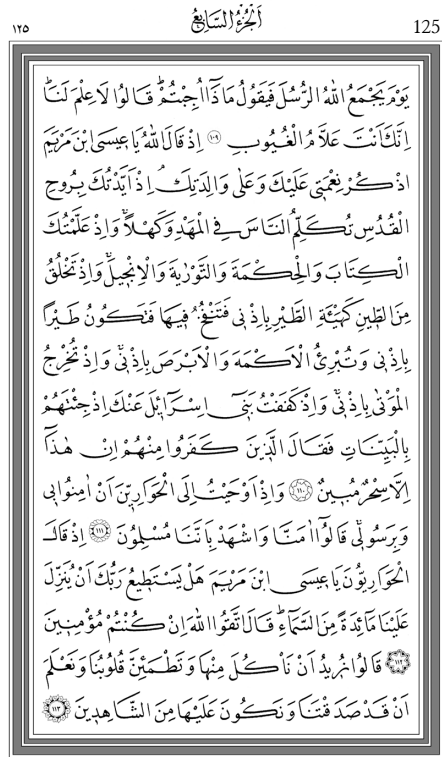 ١٢٥ اَلْجُزْءُ السَّابِعُ 125
يَوْمَ يَجْمَعُ اللّٰهُ الرُّسُلَ فَيَقُولُ مَاذَٓا اُجِبْتُمْۜ قَالُوا لَا عِلْمَ لَنَاۜ
اِنَّكَ اَنْتَ عَلَّامُ الْغُيُوبِ ﴿١٠٩﴾ اِذْ قَالَ اللّٰهُ يَا ع۪يسَى ابْنَ مَرْيَمَ
اذْكُرْ نِعْمَت۪ي عَلَيْكَ وَعَلٰى وَالِدَتِكَۢ اِذْ اَيَّدْتُكَ بِرُوحِ
الْقُدُسِ تُكَلِّمُ النَّاسَ فِي الْمَهْدِ وَكَهْلًاۚ وَاِذْ عَلَّمْتُكَ
الْكِتَابَ وَالْحِكْمَةَ وَالتَّوْرٰيةَ وَالْاِنْج۪يلَۚ وَاِذْ تَخْلُقُ
مِنَ الطّ۪ينِ كَهَيْـَٔةِ الطَّيْرِ بِاِذْن۪ي فَتَنْفُخُ ف۪يهَا فَتَكُونُ طَيْرًا
بِاِذْن۪ي وَتُبْرِئُ الْاَكْمَهَ وَالْاَبْرَصَ بِاِذْن۪يۚ وَاِذْ تُخْرِجُ
الْمَوْتٰى بِاِذْن۪يۚ وَاِذْ كَفَفْتُ بَن۪ٓي اِسْرَٓائ۪لَ عَنْكَ اِذْ جِئْتَهُمْ
بِالْبَيِّنَاتِ فَقَالَ الَّذ۪ينَ كَفَرُوا مِنْهُمْ اِنْ هٰذَٓا
اِلَّا سِحْرٌ مُب۪ينٌ ﴿١١٠﴾ وَاِذْ اَوْحَيْتُ اِلَى الْحَوَارِيّ۪نَ اَنْ اٰمِنُوا ب۪ي
وَبِرَسُول۪يۚ قَالُٓوا اٰمَنَّا وَاشْهَدْ بِاَنَّنَا مُسْلِمُونَ ﴿١١١﴾ اِذْ قَالَ
الْحَوَارِيُّونَ يَا ع۪يسَى ابْنَ مَرْيَمَ هَلْ يَسْتَط۪يعُ رَبُّكَ اَنْ يُنَزِّلَ
عَلَيْنَا مَٓائِدَةً مِنَ السَّمَٓاءِۜ قَالَ اتَّقُوا اللّٰهَ اِنْ كُنْتُمْ مُؤْمِن۪ينَ
﴿١١٢﴾ قَالُوا نُر۪يدُ اَنْ نَأْكُلَ مِنْهَا وَتَطْمَئِنَّ قُلُوبُنَا وَنَعْلَمَ
اَنْ قَدْ صَدَقْتَنَا وَنَكُونَ عَلَيْهَا مِنَ الشَّاهِد۪ينَ ﴿١١٣﴾